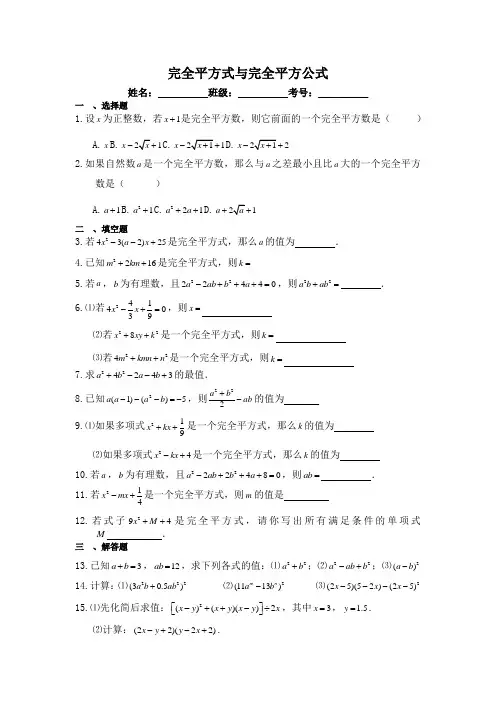 完全平方式与完全平方公式
姓名：__________班级：__________考号：__________
一 、选择题
1.设x为正整数，若x+1是完全平方数，则它前面的一个完全平方数是（ ）
A.x B.x-2√x+1 C.x-2√(x+1)+1 D.x-2√(x+1)+2
2.如果自然数a是一个完全平方数，那么与a之差最小且比a大的一个完全平方数是（ ）
A.a+1 B.a²+1 C.a²+2a+1 D.a+2√a+1
二 、填空题
3.若4x²-3(a-2)x+25是完全平方式，那么a的值为 ．
4.已知m²+2km+16是完全平方式，则k=
5.若a，b为有理数，且2a²-2ab+b²+4a+4=0，则a²b+ab²= ．
6.⑴若4x²-4/3x+1/9=0，则x=
⑵若x²+8xy+k²是一个完全平方式，则k=
⑶若4m²+kmn+n²是一个完全平方式，则k=
7.求a²+4b²-2a-4b+3的最值．
8.已知a(a-1)-(a²-b)=-5，则(a²+b²)/2-ab的值为
9.⑴如果多项式x²+kx+1/9是一个完全平方式，那么k的值为
⑵如果多项式x²-kx+4是一个完全平方式，那么k的值为
10.若a，b为有理数，且a²-2ab+2b²+4a+8=0，则ab= ．
11.若x²-mx+1/4是一个完全平方式，则m的值是
12.若式子9x²+M+4是完全平方式，请你写出所有满足条件的单项式M ．
三 、解答题
13.已知a+b=3，ab=12，求下列各式的值：⑴a²+b²；⑵a²-ab+b²；⑶(a-b)²
14.计算：⑴(3a²b+0.5ab²)² ⑵(11aᵐ-13bⁿ)² ⑶(2x-5)(5-2x)-(2x-5)²
15.⑴先化简后求值：[(x-y)²+(x+y)(x-y)]÷2x，其中x=3，y=1.5．
⑵计算：(2x-y+2)(y-2x+2)．